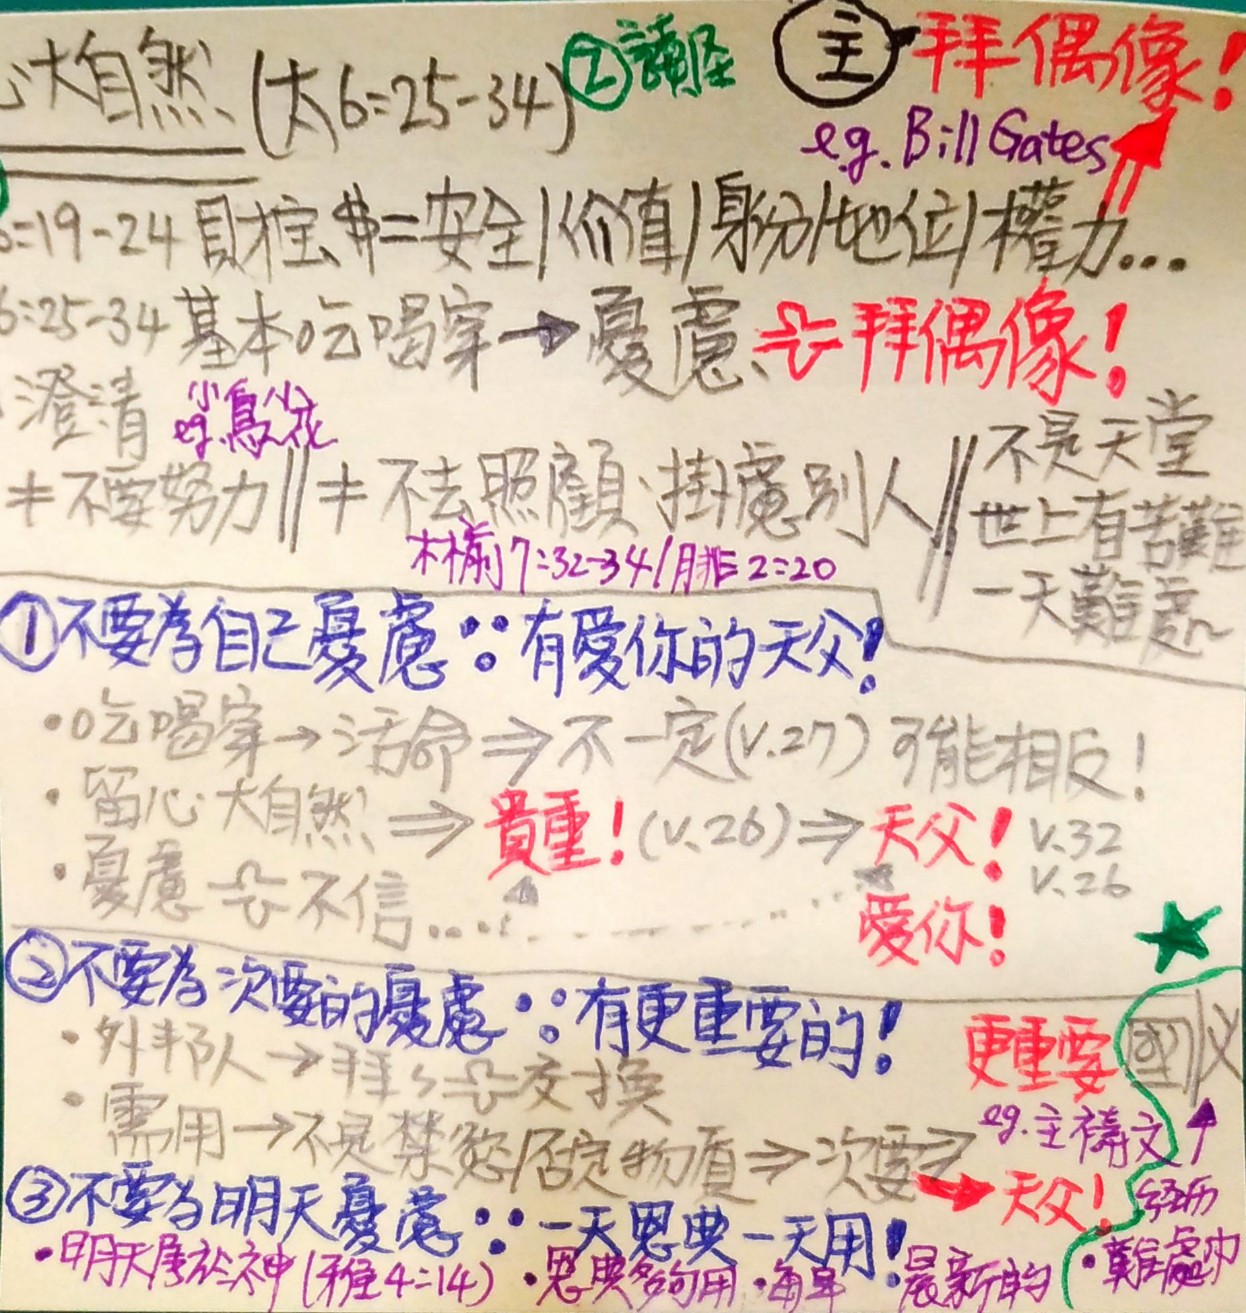 心大自然 (太6:25-34) ② 主 拜偶像!
e.g. Bill Gates
6:19-24 財主、$=安全/价值/身分/地位/權力...
6:25-34 基本吃喝穿→憂慮、 拜偶像!
澄清 eg.小鳥小花
≠不要努力 || ≠不去照顧、掛慮別人 || 不是天堂
世上有苦難
一天難處
林前7:32-34/腓2:20
①不要為自己憂慮∵有愛你的天父!
•吃喝穿→活命⇒不一定(v.27)可能相反!
•留心大自然⇒貴重!(v.26)⇒天父! v.32
v.26
•憂慮 不信.... 愛你!
②不要為次要的憂慮∵有更重要的!
•外邦人→拜 交換 更重要 國/义
•需用→不是禁慾/否定物質⇒次要⇒ eg.主禱文↑
→天父! 经历
③不要为明天憂慮∵一天恩典一天用!
•明天屬於神(雅4:14) •恩典够用 •每早 最新的 •難處中